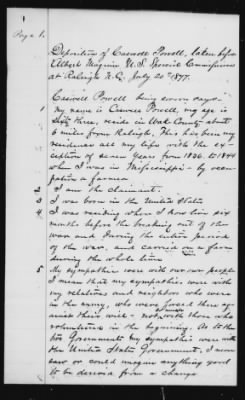 Page 1.
Deposition of Creswell Powell, taken before
Albert Magnin U.S. Special Commissioner
at Raleigh N.C. July 20th 1877.
Creswell Powell being sworn says
1 My name is Creswell Powell, my age is
Sixty three, reside in Wake County about
6 miles from Raleigh. This has been my
residence all my life with the ex-
ception of seven years from 1836 to 1844
when I was in Mississippi - by occu-
pation a farmer
2 I am the claimant.
3 I was born in the United States
4 I was residing where I now live six
months before the breaking out of the
war and during the entire period
of the war, and carried on a farm
during the whole time
5 My sympathies were with our own people
I mean that my sympathies were with
my relations and neighbors who were
in the army, who were forced there ag-
ainst their will - not with those who
volunteered in the beginning. As to the
two Governments my sympathies were with
the United States Government, I never
saw or could imagine anything good
to be derived from a change